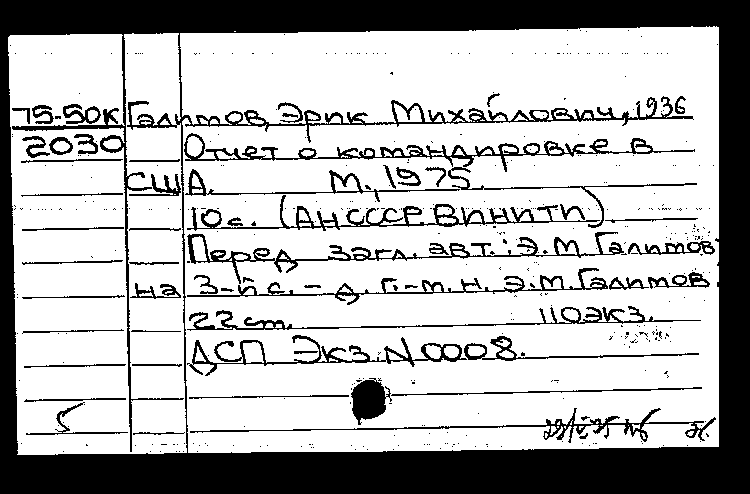 75-50К Галимов, Эрик Михайлович, 1936
2030 Отчет о командировке в
США. М., 1975.
10 с. (АН СССР ВИНИТИ).
Перед загл. авт.: Э.М. Галимов,
на 3-й с. - д. г.-м. н. Э.М. Галимов.
22 см. 110 экз.
ДСП Экз. N 0008.
5